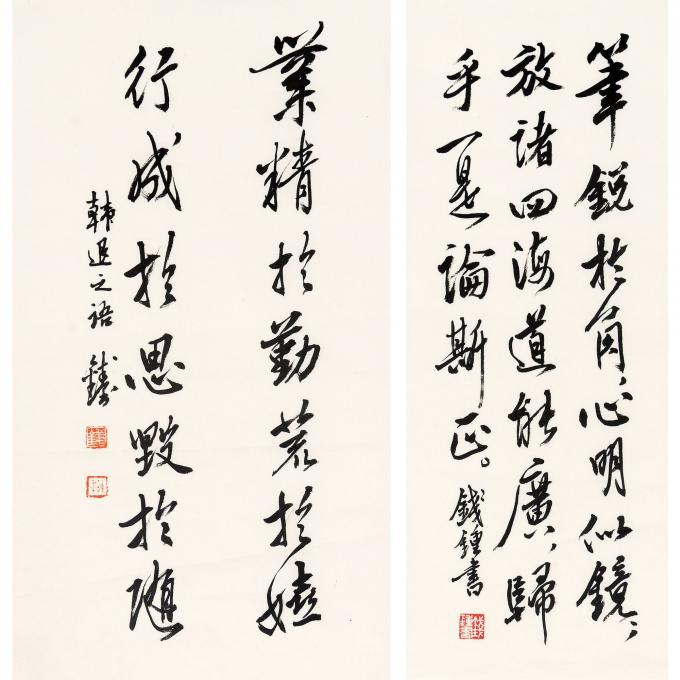 筆銳於角，心明似鏡，
放諸四海道能廣，歸
乎一是論斯正。
錢鍾書
業精於勤荒於嬉
行成於思毀於隨
韓退之語